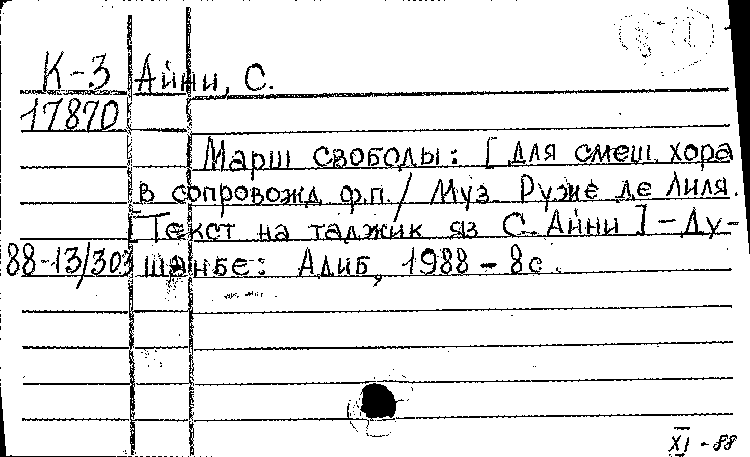 К-3 Айни, С.
17870
Марш свободы: [для смеш. хора
в сопровожд. ф.п./ Муз. Руже де Лиля.
Текст на таджик. яз. С. Айни] - Ду-
88-13/303 шанбе: Адиб, 1988 - 8с.
XI - 88